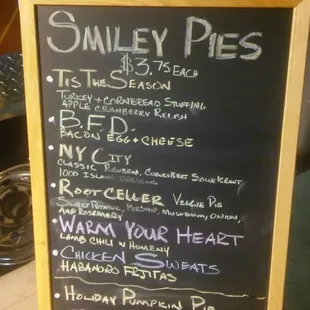 SMILEY PIES
$3.75 EACH
• TIS THE SEASON
TURKEY + CORNBREAD STUFFING
APPLE CRANBERRY RELISH
• B.F.D.
BACON EGG + CHEESE
• NY CITY
CLASSIC REUBEN, CORN BEEF SOUR KRAUT,
1000 ISLAND DRESSING
• ROOT CELLER VEGGIE PIE
SWEET POTATOE, PARSNIP, MUSHROOM, ONION,
AND ROSEMERRY
• WARM YOUR HEART
LAMB CHILI N HOMENY
• CHICKEN SWEATS
HABANORO FRJITAS
• HOLIDAY PUMPKIN PIE